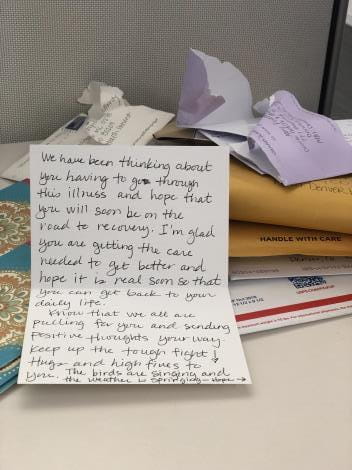 We have been thinking about
you having to go through
this illness and hope that
you will soon be on the
road to recovery. I'm glad
you are getting the care
needed to get better and
hope it is real soon so that
you can get back to your
daily life.
Know that we all are
pulling for you and sending
positive thoughts your way.
Keep up the tough fight!
Hugs and high fives to
you. The birds are singing and
the weather is springidy - Hope →
HANDLE WITH CARE